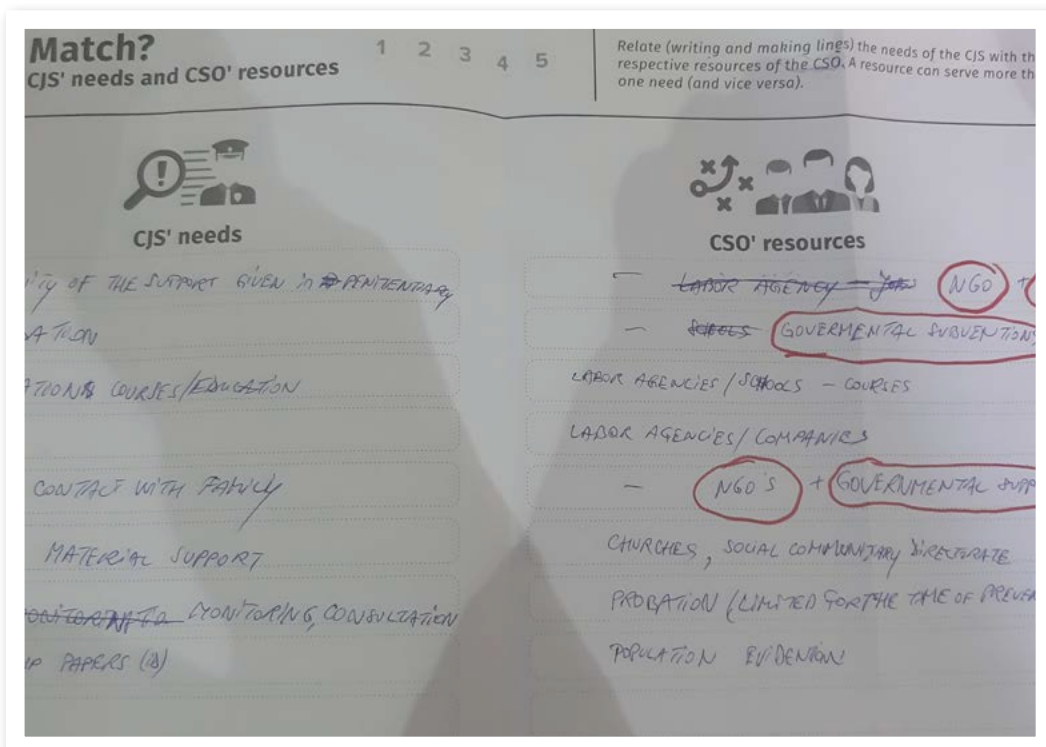 Match?
CJS' needs and CSO' resources
1 2 3 4 5
Relate (writing and making lines) the needs of the CJS with th
respective resources of the CSO. A resource can serve more th
one need (and vice versa).
CJS' needs
ITY OF THE SUPPORT GIVEN IN PENITENTIARY
ATION
ATIONS COURSES/EDUCATION
CONTACT WITH FAMILY
MATERIAL SUPPORT
MONITORING, CONSULTATION
UP PAPERS (ID)
CSO' resources
- LABOR AGENCY - NGO +
- SCHOOLS GOVERMENTAL SUBVENTIONS
LABOR AGENCIES/SCHOOLS - COURSES
LABOR AGENCIES/COMPANIES
- NGO'S + GOVERNMENTAL SUPP
CHURCHES, SOCIAL COMMUNITARY DIRECTORATE
PROBATION (LIMITED FOR THE TIME OF PREVEN
POPULATION